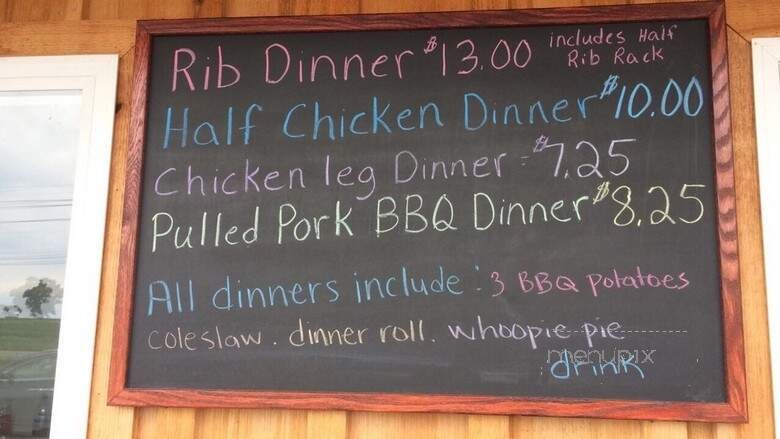 Rib Dinner $13.00 includes Half
Rib Rack
Half Chicken Dinner $10.00
Chicken leg Dinner - $7.25
Pulled Pork BBQ Dinner $8.25
All dinners include : 3 BBQ potatoes
coleslaw . dinner roll . whoopie pie
menupix
drink